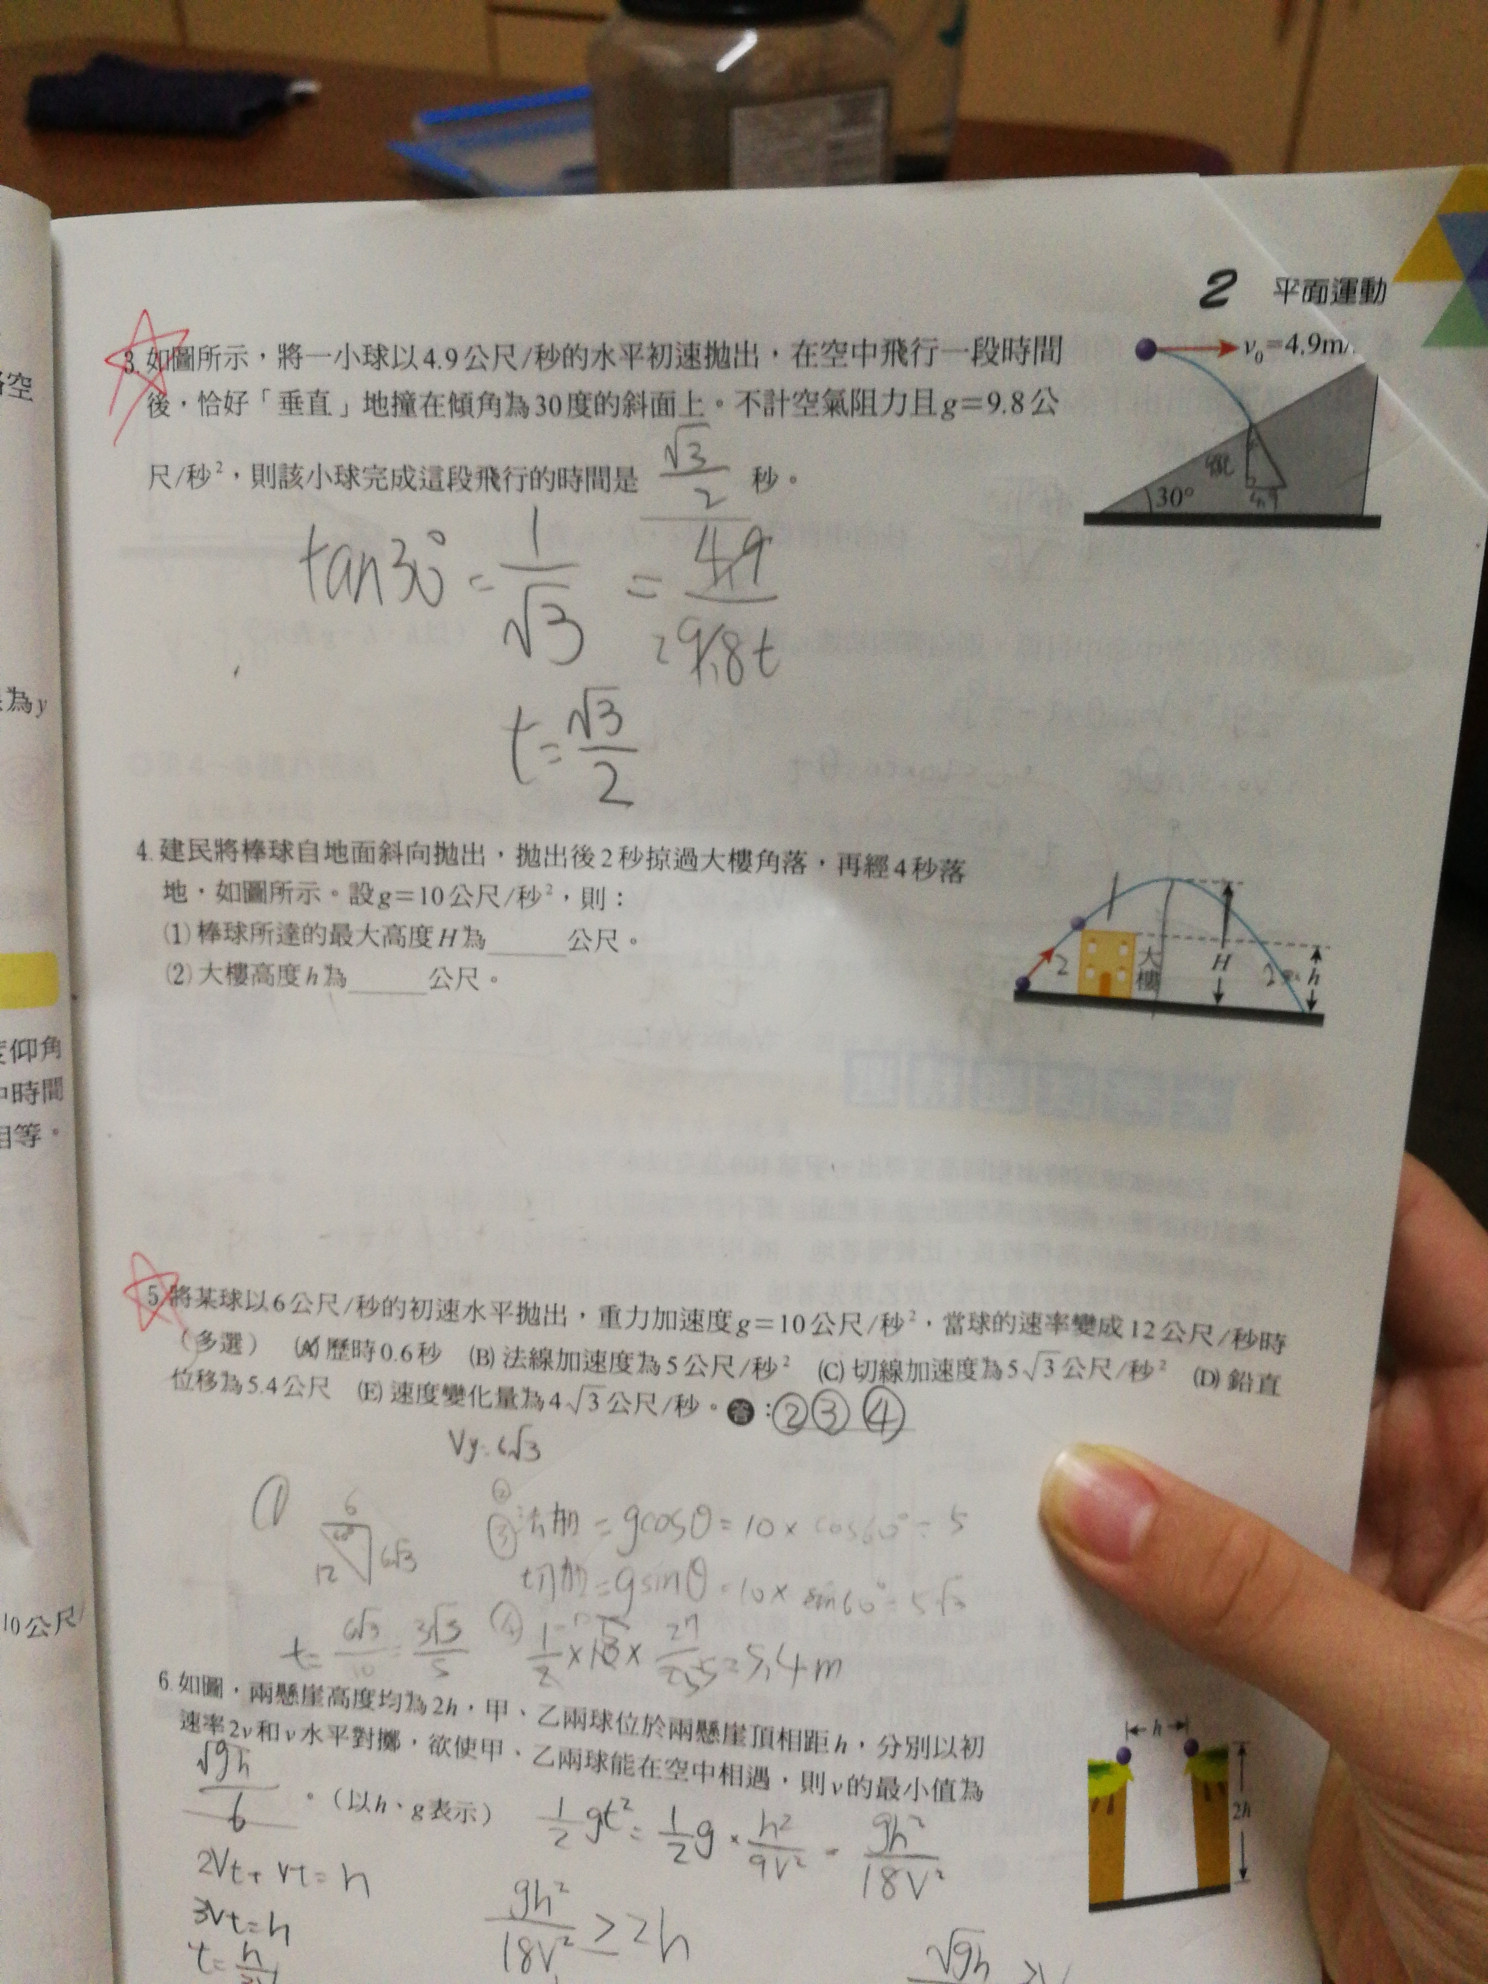 2 平面運動
3. 如圖所示，將一小球以4.9公尺/秒的水平初速拋出，在空中飛行一段時間
後，恰好「垂直」地撞在傾角為30度的斜面上。不計空氣阻力且g=9.8公
尺/秒²，則該小球完成這段飛行的時間是 √3/2 秒。
v₀=4.9m/
30°
4.9
tan30°=1/√3=4.9/9.8t
2
t=√3/2
4. 建民將棒球自地面斜向拋出，拋出後2秒掠過大樓角落，再經4秒落
地，如圖所示。設g=10公尺/秒²，則：
(1) 棒球所達的最大高度H為______公尺。
(2) 大樓高度h為______公尺。
2
大樓
H
2
h
5. 將某球以6公尺/秒的初速水平拋出，重力加速度g=10公尺/秒²，當球的速率變成12公尺/秒時
（多選） (A) 歷時0.6秒 (B) 法線加速度為5公尺/秒² (C) 切線加速度為5√3公尺/秒² (D) 鉛直
位移為5.4公尺 (E) 速度變化量為4√3公尺/秒。答：②③④
Vy=6√3
①
6
60°
12
6√3
t=6√3/10=3√3/5
②
③
法加=gcosθ=10×cos60°=5
切加=gsinθ=10×sin60°=5√3
④ 1/2×10×27/25=5.4m
6. 如圖，兩懸崖高度均為2h，甲、乙兩球位於兩懸崖頂相距h，分別以初
速率2v和v水平對擲，欲使甲、乙兩球能在空中相遇，則v的最小值為
√gh/6 。（以h、g表示）
h
2h
1/2gt²=1/2g×h²/9V²=gh²/18V²
2Vt+Vt=h
3Vt=h
gh²/18V²≥2h
空
為y
度仰角
中時間
相等。
10公尺/